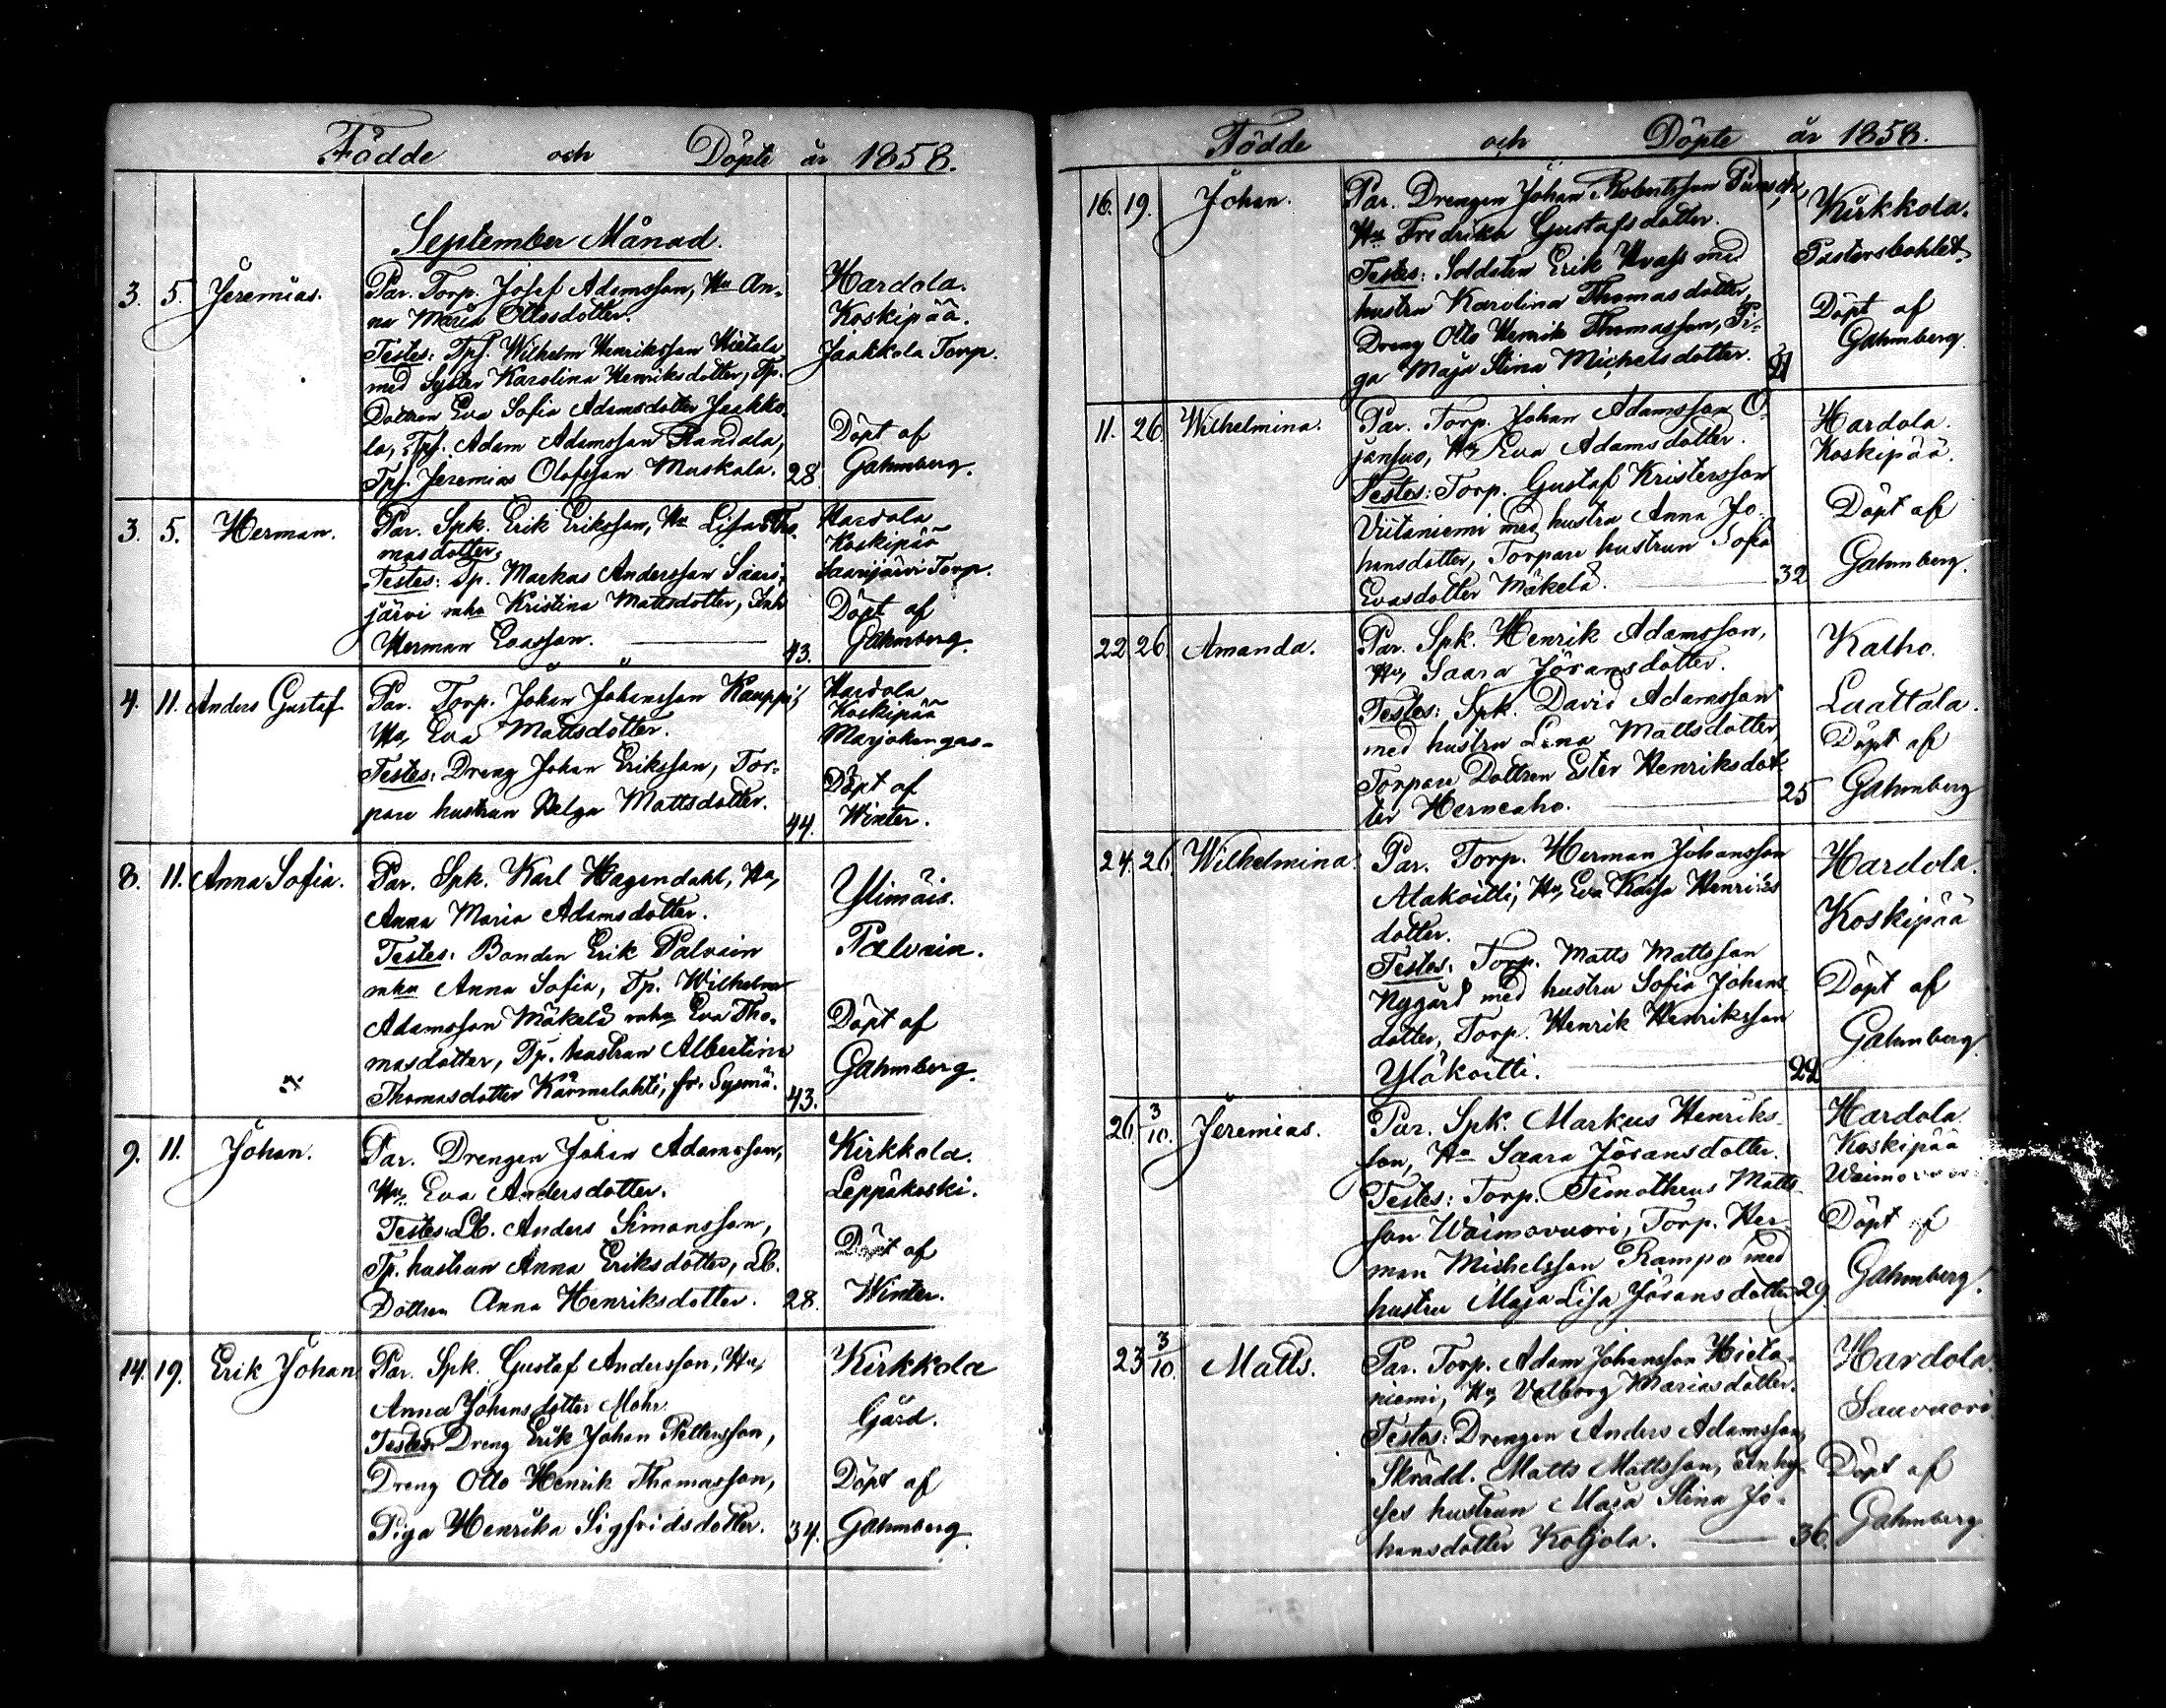 Födde och Döpte år 1858.
September Månad.
3. 5. Jeremias. Par. Torp. Josef Adamsson, Hu An- Hardola.
na Maria Ottosdotter. Koskipää.
Testes: Tpf. Wilhelm Henriksson Hietala Jaakkola Torp.
med Syster Karolina Henriksdotter, Tp.
Dottren Eva Sofia Adamsdotter Jaakko-
la, Tpf. Adam Adamsson Randala, Döpt af
Tpf. Jeremias Olofsson Muskala. 28 Gahmberg.
3. 5. Herman. Par. Spk. Erik Eriksson, Hu Lisa Tho- Hardola
masdotter. Koskipää
Testes: Tp. Markus Andersson Saari- Saarijärvi Torp.
järvi mhu Kristina Mattsdotter, Inh Döpt af
Herman Evasson. 43. Gahmberg.
4. 11. Anders Gustaf Par. Torp. Johan Johansson Kauppi, Hardola
Hu, Eva Mattsdotter. Koskipää
Testes: Dreng Johan Eriksson, Tor- Marjokangas-
pare hustrun Helga Mattsdotter. 44. Döpt af
Winter.
8. 11. Anna Sofia. Par. Spk. Karl Hagendahl, Hu, Ylimäis.
Anna Maria Adamsdotter.
Testes: Bonden Erik Palvain Palvain.
mhu Anna Sofia, Tp. Wilhelm
Adamsson Mäkelä mhu Eva Tho- Döpt af
masdotter, Tp. hustrun Albertina Gahmberg.
Thomasdotter Kärmelahti, fr. Sysmä. 43.
9. 11. Johan. Par. Drengen Johan Adamsson, Kirkkola.
Hu, Eva Andersdotter. Leppäkoski.
Testes: Lb. Anders Simonsson,
Tp. hustrun Anna Eriksdotter, Lb. Döpt af
Dottren Anna Henriksdotter. 28. Winter.
14. 19. Erik Johan Par. Spk. Gustaf Andersson, Hu, Kirkkola
Anna Johansdotter Mohr. Gård.
Testes: Dreng Erik Johan Pettersson,
Dreng Otto Henrik Thomasson, Döpt af
Piga Henrika Sigfridsdotter. 34. Gahmberg.
Födde och Döpte år 1858.
16. 19. Johan. Par. Drengen Johan Robertsson Punsch, Kirkkola.
Hu Fredrika Gustafsdotter.
Testes: Soldaten Erik Hvass med Pastorsbohlet.
hustru Karolina Thomasdotter,
Dreng Otto Henrik Thomasson, Pi- Döpt af
ga Maja Stina Michelsdotter. 21 Gahmberg.
11. 26. Wilhelmina. Par. Torp. Johan Adamsson O- Hardola.
jansuo, Hu Eva Adamsdotter. Koskipää.
Testes: Torp. Gustaf Kristersson
Viitaniemi med hustru Anna Jo- Döpt af
hansdotter, Torpare hustrun Sofia
Evasdotter Mäkelä. 32 Gahmberg.
22 26. Amanda. Par. Spk. Henrik Adamsson, Kalho.
Hu, Saara Jöransdotter.
Testes: Spk. David Adamsson Luattala.
med hustru Lena Mattsdotter, Döpt af
Torpare Dottren Ester Henriksdot-
ter Herneaho. 25 Gahmberg
24. 26. Wilhelmina. Par. Torp. Herman Johansson Hardola.
Alakoitti, Hu, Eva Kaisa Henriks
dotter. Koskipää
Testes: Torp. Matts Mattsson
Nygård med hustru Sofia Johans Döpt af
dotter, Torp. Henrik Henriksson
Yläkoitti. 22 Gahmberg.
26. 3/10. Jeremias. Par. Spk. Markus Henriks- Hardola.
son, Hu Saara Jöransdotter. Koskipää
Testes: Torp. Timotheus Matts-
son Waimovuori, Torp. Her- Döpt af
man Michelsson Rampo med
hustru Maja Lisa Jöransdotter 29. Gahmberg.
23 3/10. Matts. Par. Torp. Adam Johansson Hieta- Hardola.
niemi, Hu, Valborg Mariasdotter. Sauvuori
Testes: Drengen Anders Adamsson,
Skrädd. Matts Mattsson, Inhy- Döpt af
ses hustrun Maja Stina Jo-
hansdotter Koljola. 36. Gahmberg.